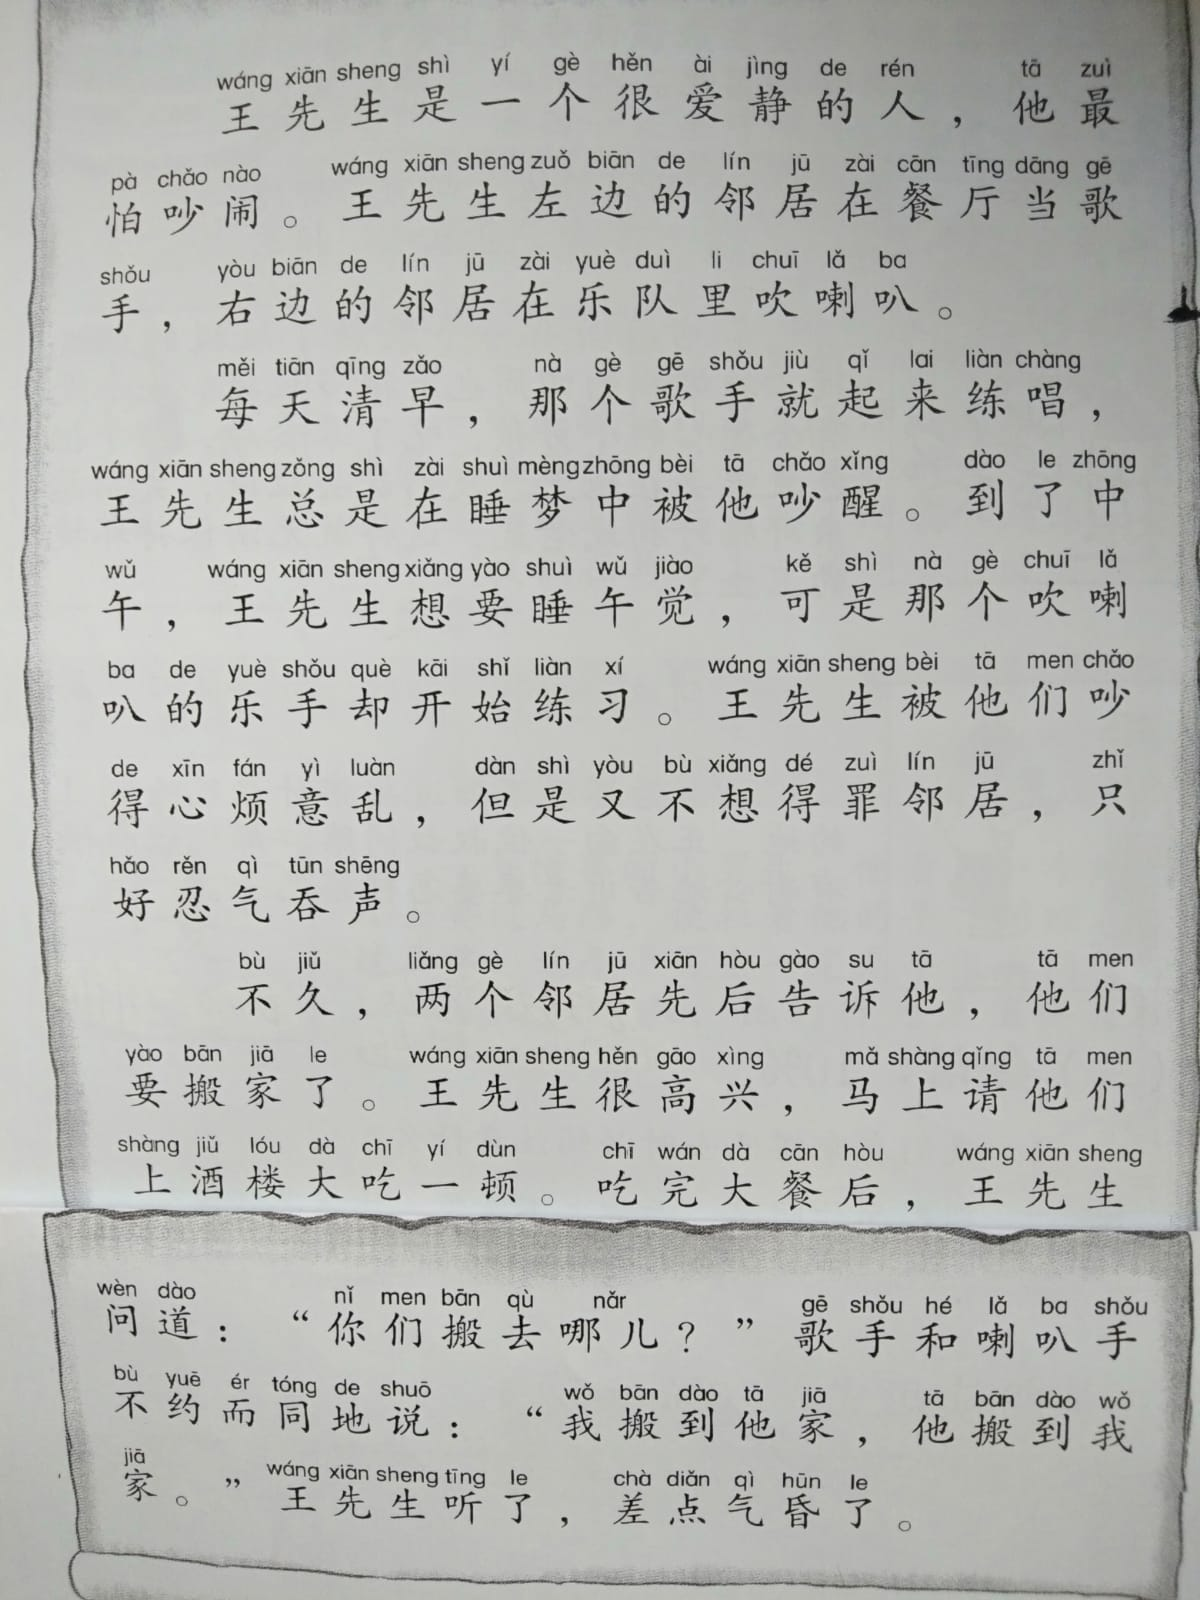 wáng xiān sheng shì yí gè hěn ài jìng de rén tā zuì
王先生是一个很爱静的人，他最
pà chǎo nào wáng xiān sheng zuǒ biān de lín jū zài cān tīng dāng gē
怕吵闹。王先生左边的邻居在餐厅当歌
shǒu yòu biān de lín jū zài yuè duì li chuī lǎ ba
手，右边的邻居在乐队里吹喇叭。
měi tiān qīng zǎo nà gè gē shǒu jiù qǐ lai liàn chàng
每天清早，那个歌手就起来练唱，
wáng xiān sheng zǒng shì zài shuì mèng zhōng bèi tā chǎo xǐng dào le zhōng
王先生总是在睡梦中被他吵醒。到了中
wǔ wáng xiān sheng xiǎng yào shuì wǔ jiào kě shì nà gè chuī lǎ
午，王先生想要睡午觉，可是那个吹喇
ba de yuè shǒu què kāi shǐ liàn xí wáng xiān sheng bèi tā men chǎo
叭的乐手却开始练习。王先生被他们吵
de xīn fán yì luàn dàn shì yòu bù xiǎng dé zuì lín jū zhǐ
得心烦意乱，但是又不想得罪邻居，只
hǎo rěn qì tūn shēng
好忍气吞声。
bù jiǔ liǎng gè lín jū xiān hòu gào su tā tā men
不久，两个邻居先后告诉他，他们
yào bān jiā le wáng xiān sheng hěn gāo xìng mǎ shàng qǐng tā men
要搬家了。王先生很高兴，马上请他们
shàng jiǔ lóu dà chī yí dùn chī wán dà cān hòu wáng xiān sheng
上酒楼大吃一顿。吃完大餐后，王先生
wèn dào nǐ men bān qù nǎr gē shǒu hé lǎ ba shǒu
问道：“你们搬去哪儿？”歌手和喇叭手
bù yuē ér tóng de shuō wǒ bān dào tā jiā tā bān dào wǒ
不约而同地说：“我搬到他家，他搬到我
jiā wáng xiān sheng tīng le chà diǎn qì hūn le
家。”王先生听了，差点气昏了。